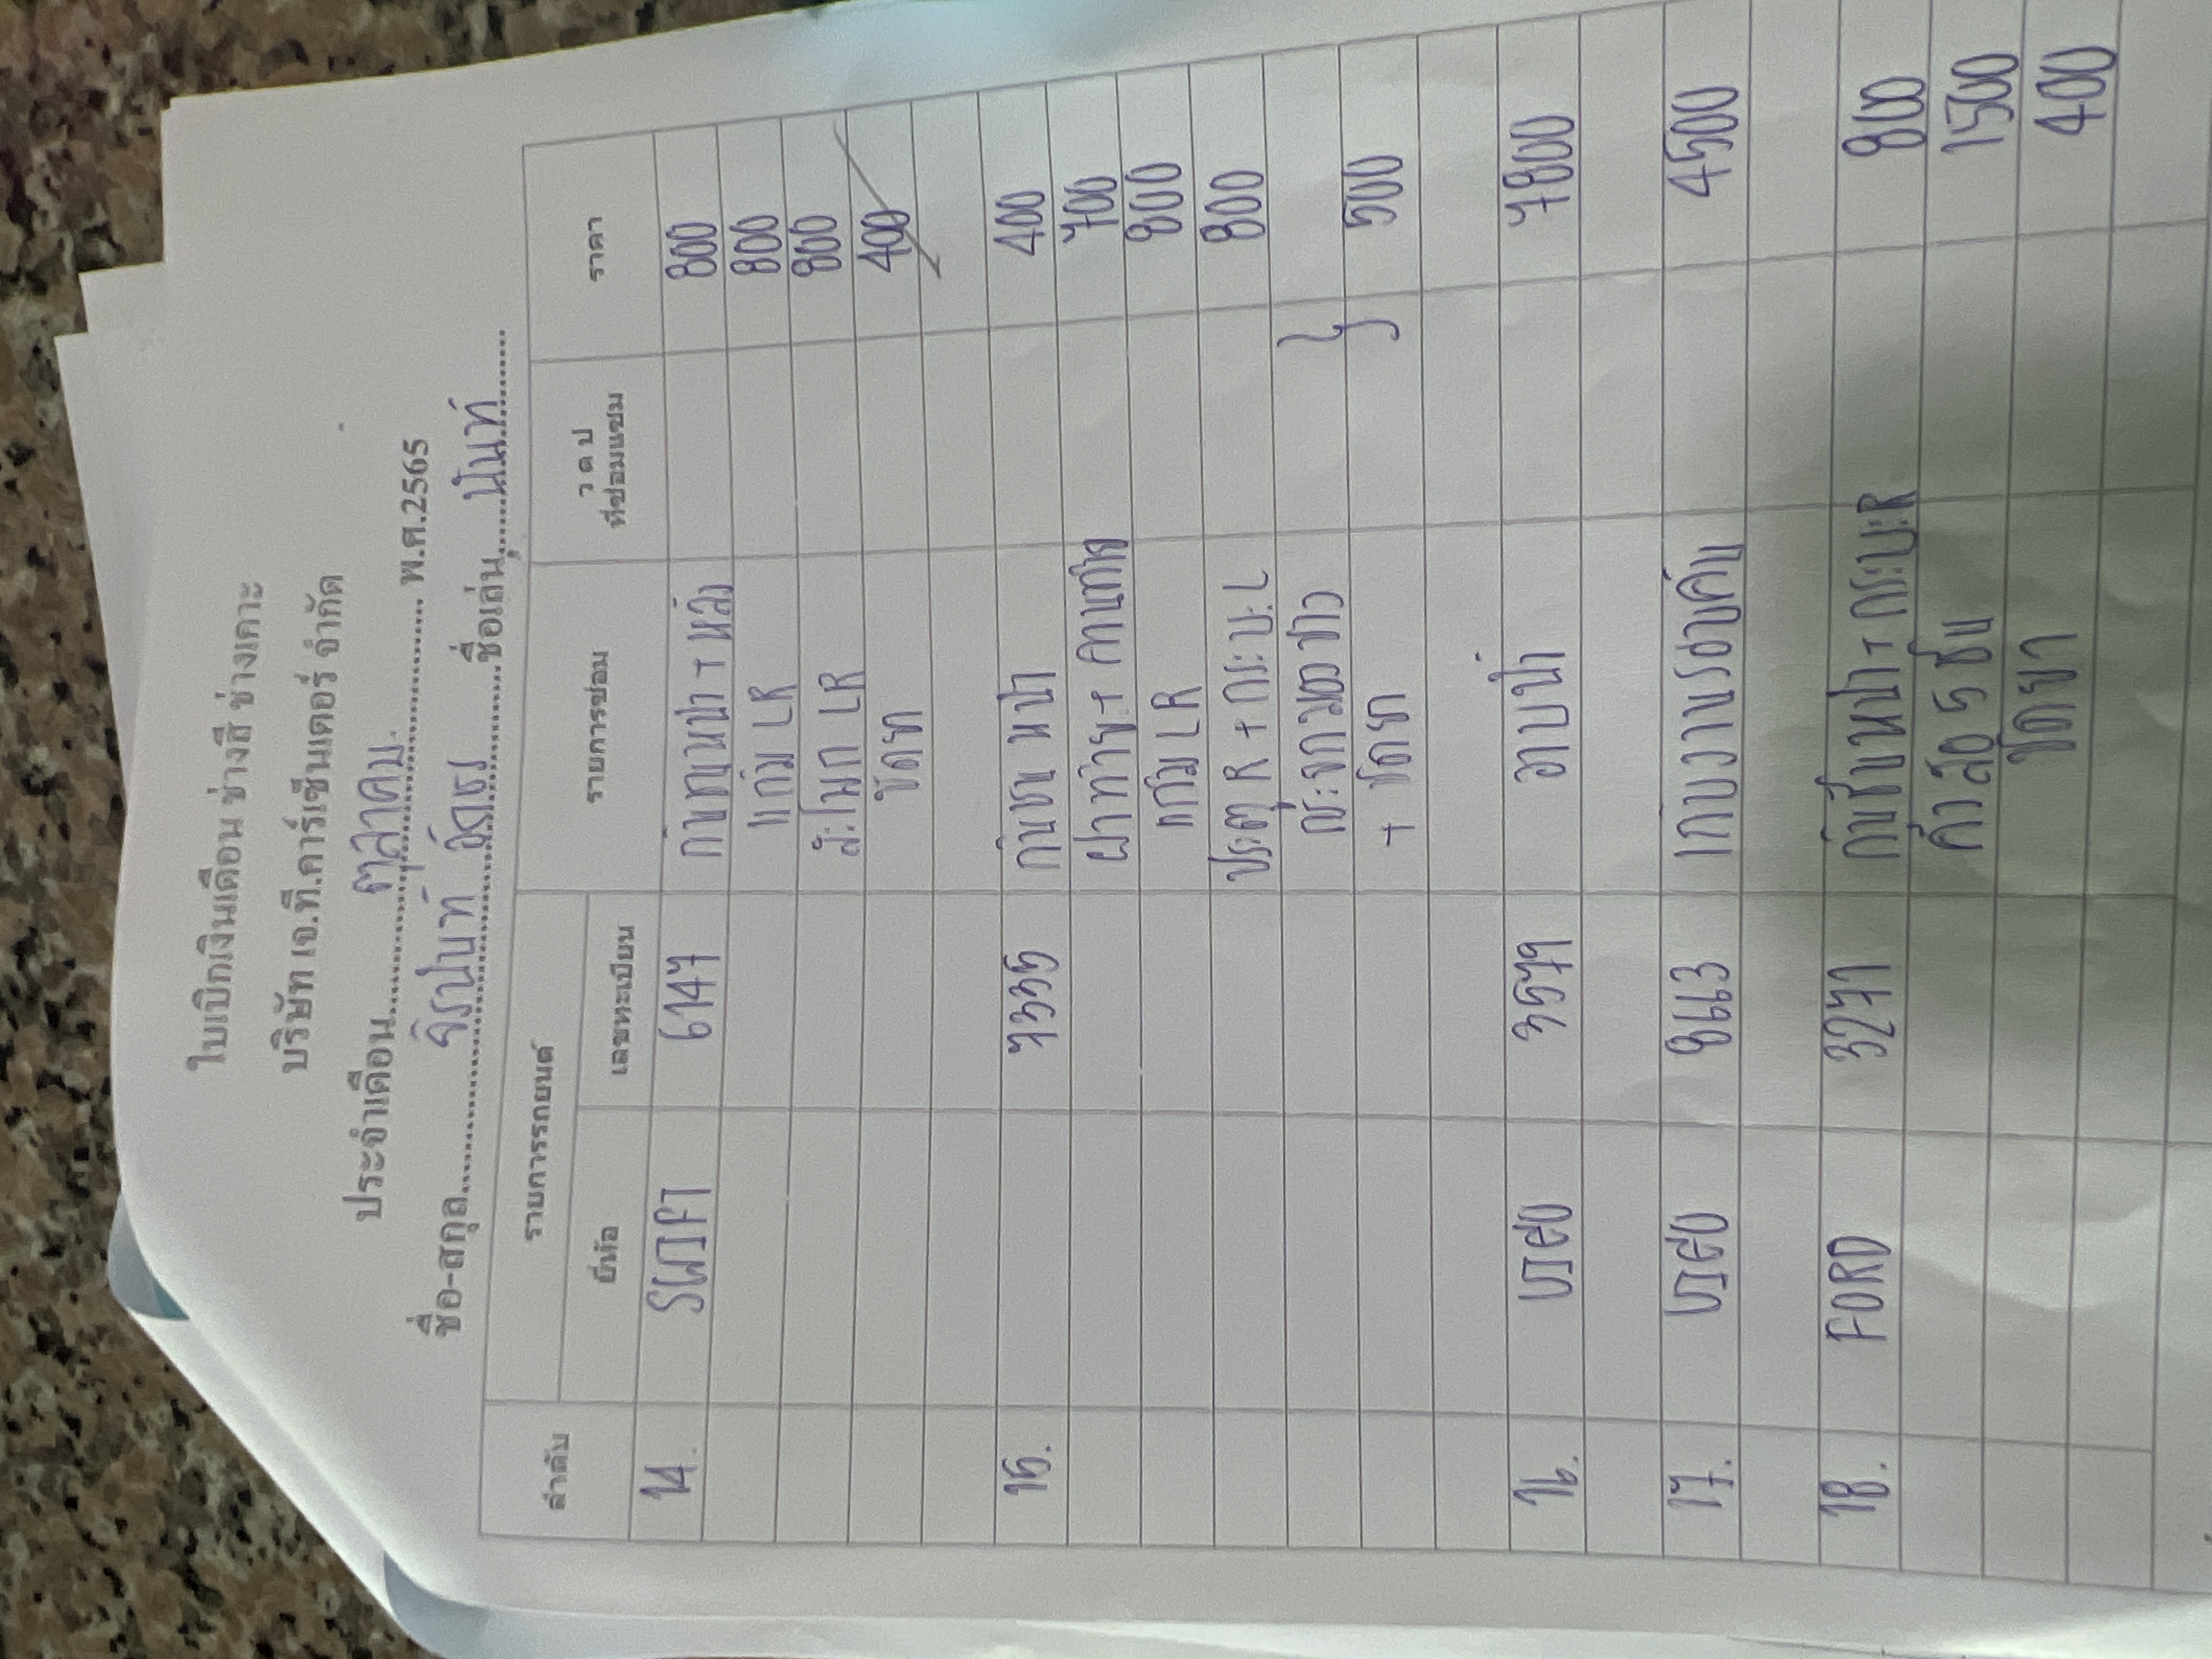 ใบเบิกเงินเดือน ช่างสี ช่างเคาะ
บริษัท เจ.ที.คาร์เซ็นเตอร์ จำกัด
ประจำเดือน ตุลาคม พ.ศ.2565
ชื่อ-สกุล จิรนันท์ ชื่อเล่น นันท์
ลำดับ รายการรถยนต์ รายการซ่อม ว ด ป ที่ซ่อมแซม ราคา
ยี่ห้อ เลขทะเบียน
14. SWIFT 6147 กันชนหน้า + หลัง 800
แก้ม LR 800
สะเกิท LR 800
ขัดยา 400
15. 7335 กันชน หน้า 400
ฝาท้าย + 700
แก้ม LR 800
ประตู R + กระบะ L 800
กระจกมองข้าง
+ ขัดยา 500
16. วีโก้ 3579 อาบน้ำ 7800
17. วีโก้ 8663 เก็บงานรอบคัน 4500
18. FORD 3271 กันชนหน้า + กระบะR 800
คิ้วล้อ 5 ชิ้น 1500
ขัดยา 400